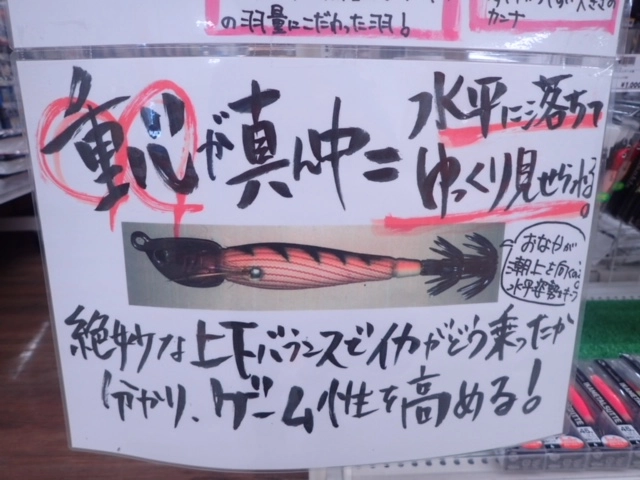 の羽量にこだわった羽!
カンナ
重心が真ん中=水平に落ちて
ゆっくり見せられる。
おなかが
潮上を向くので
水平姿勢をキープ
絶妙な上下バランスでイカがどう乗ったか
分かり、ゲーム性を高める!